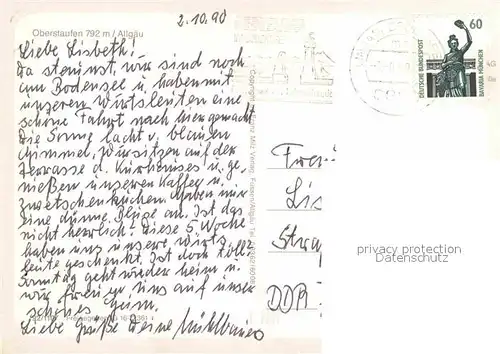 2.10.90
Oberstaufen 792 m / Allgäu
Liebe Lisbeth!
Da staunst, wir sind noch
am Bodensee u. haben mit
unseren Wirtsleuten eine
schöne Fahrt nach hier gemacht
Die Sonne lacht v. blauen
Himmel, wir sitzen auf der
Terrasse d. Kurhauses u. ge-
nießen unseren Kaffee u.
Zwetschenkuchen. Haben nur
eine dünne Bluse an. Ist das
nicht herrlich. Diese 5. Woche
haben uns unsere Wirts-
leute geschenkt. Ist doch toll.
Sonntag geht wieder heim u.
wir freuen uns auf unser
schönes Heim.
Liebe Grüße Deine
60
DEUTSCHE BUNDESPOST
BAVARIA MÜNCHEN
Frau
Lis
Stra
DDR
privacy protection
Datenschutz